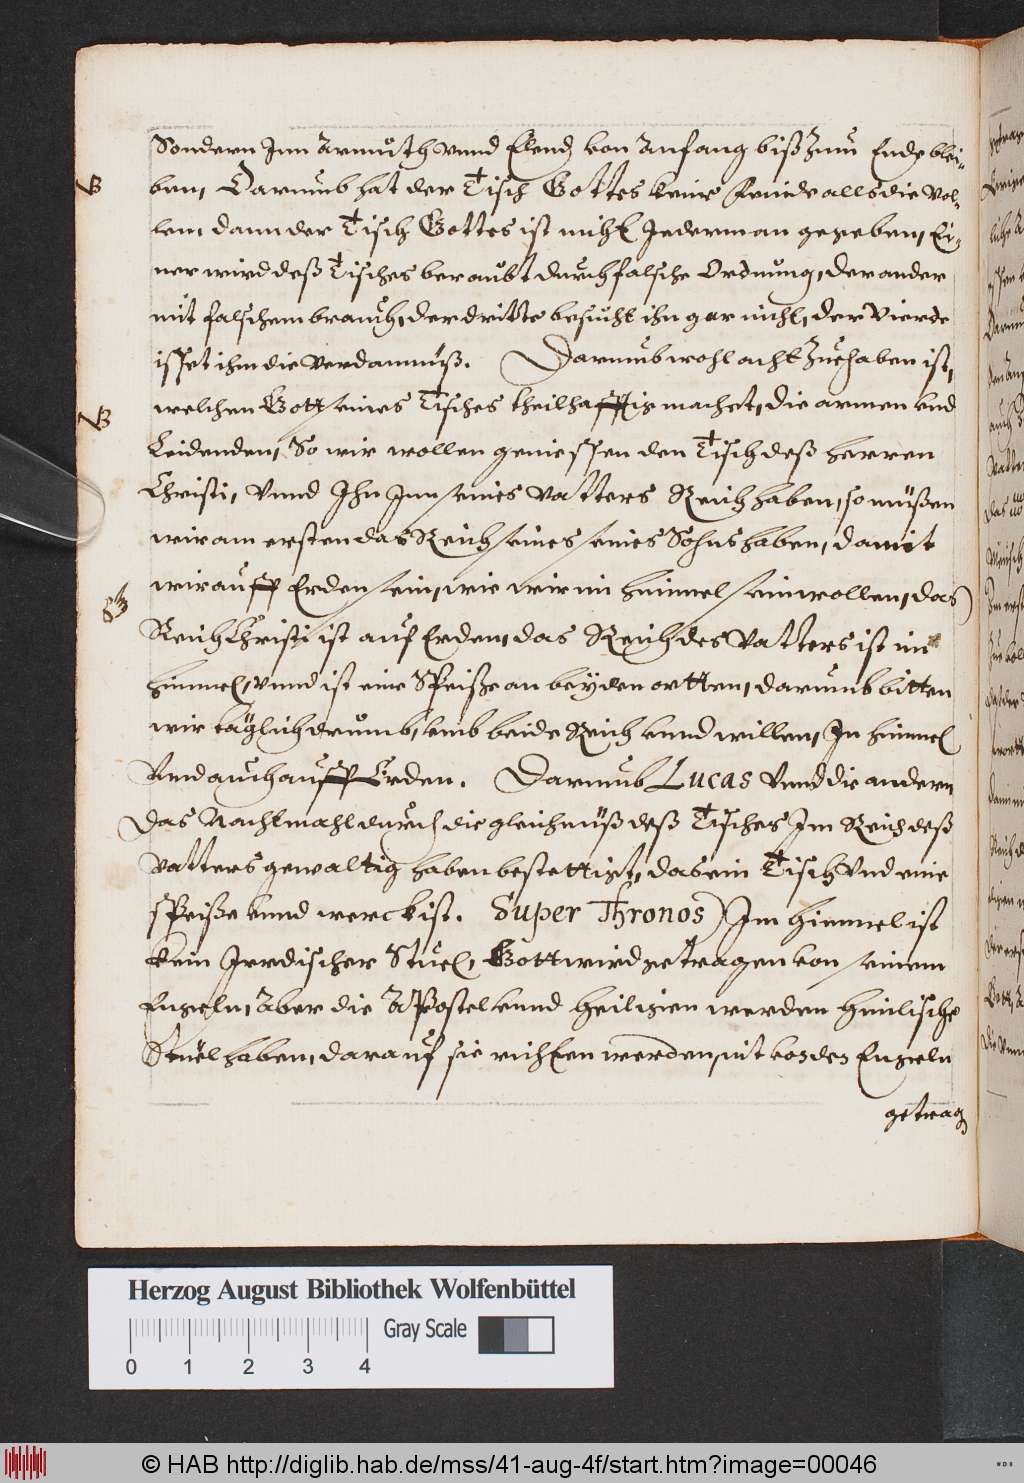 Sondern Inn Armuth Vnnd Elend, von Anfang biß Zum Ende blei-
ben, Darumb hat der Tisch Gottes keine Feinde alls die Vol-
len, dann der Tisch Gottes ist nicht Jederman gegeben, Ei-
ner wird deß Tisches beraubt durch falsche Ordnung, der ander
mit falschem brauch, der dritte besucht ihn gar nicht, der Vierde
isset ihm die Verdamnuß. Darumb wohl acht Zue haben ist,
welchen Gott seines Tisches theilhafftig machet, die armen vnd
Leidenden, So wir wollen geniessen den Tisch deß herren
Christi, Vnnd Ihn Inn seines Vatters Reich haben, so müßen
wir am ersten das Reich seines Sohns haben, damit
wir auff Erden sein, wie wir im himmel sein wollen, das
Reich Christi ist auf Erden, das Reich des Vatters ist im
himmel, Vnnd ist eine Speiße an beyden ortten, darumb bitten
wir täglich drumb, vmb beide Reich vnnd willen, In himmel
Vnd auch auff Erden. Darumb Lucas Vnnd die andern
Das Nachtmahl durch die gleichnüß deß Tisches Im Reich deß
Vatters gewaltig haben bestettigt, das ein Tisch Vnd eine
speiße vnnd werck ist. Super Thronos) Im himmel ist
kein Irrdischer Stuel, Gott wird getragen von seinem
Engeln, Aber die Apostel vnnd heiligen werden himlische
Stüel haben, darauf sie richten werden, mit von den Engeln
getrag
Herzog August Bibliothek Wolfenbüttel
Gray Scale
0 1 2 3 4
© HAB http://diglib.hab.de/mss/41-aug-4f/start.htm?image=00046